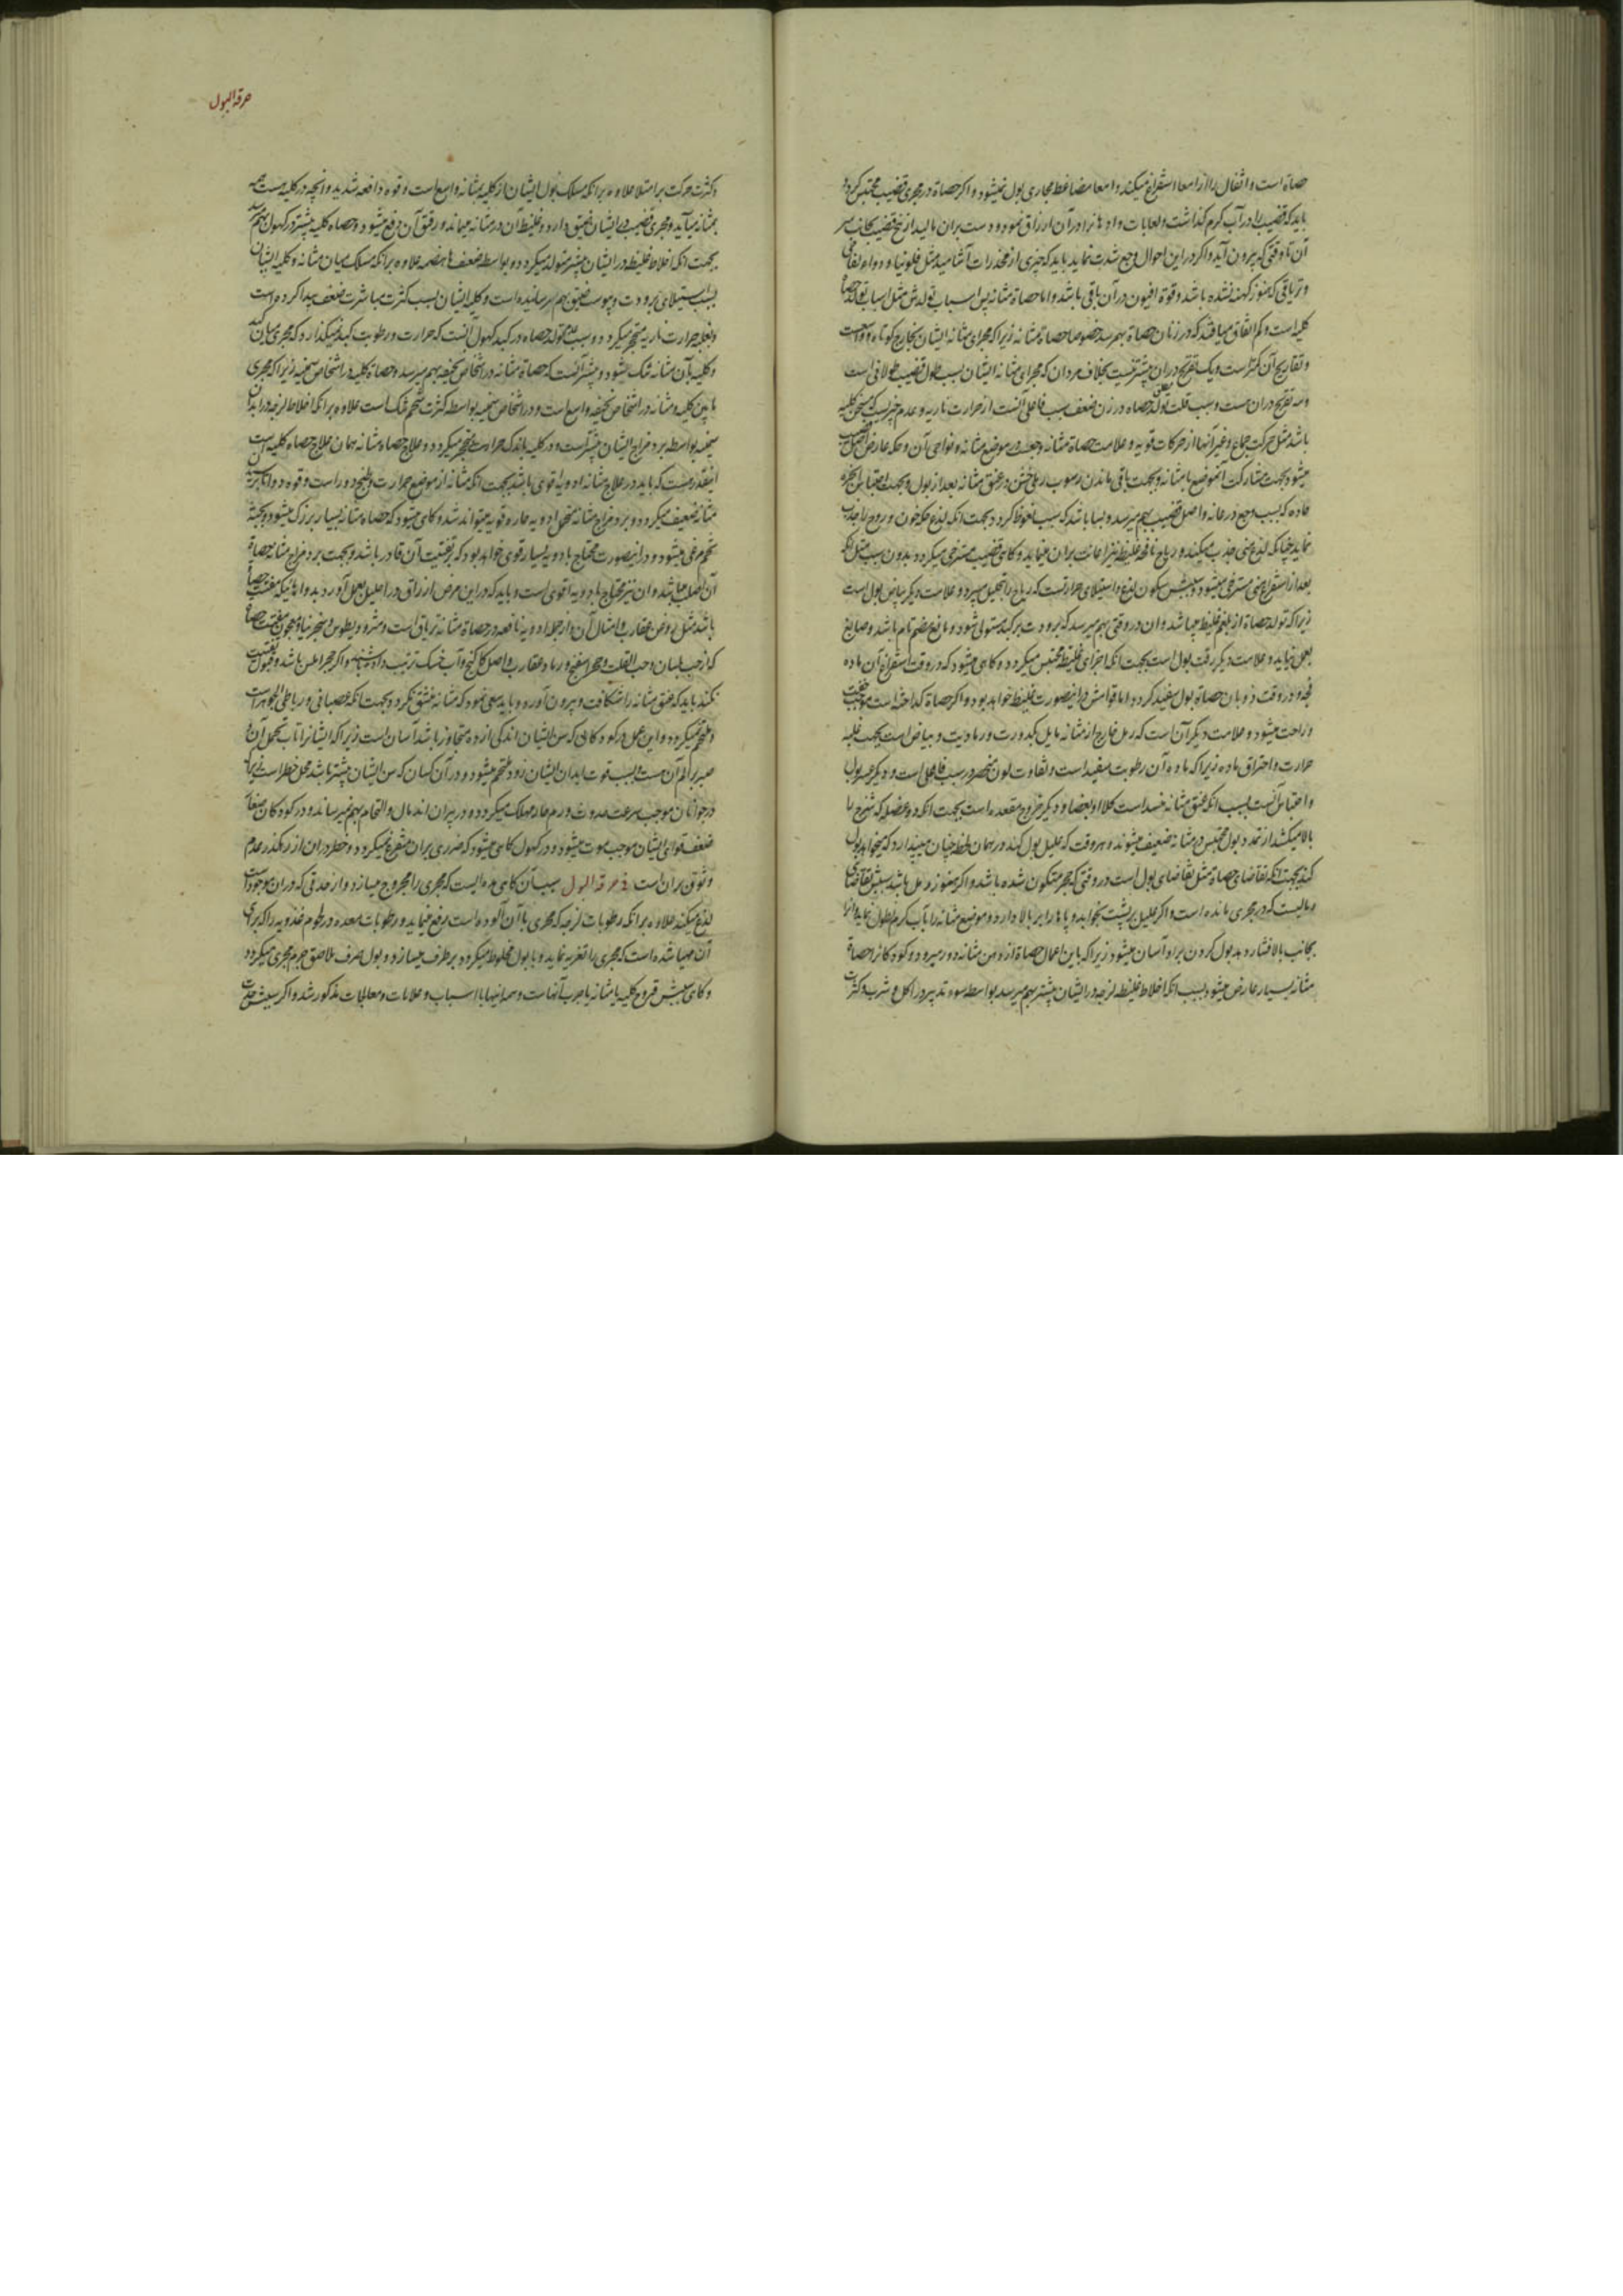 حصاة است و اثقال را از امعا استفراغ میکند و امعا مضاغط مجاری بول نمیشود و اکر حصاة در مجری قضیب محتبس کردد
باید که قضیب را در آب کرم کذاشت و لعابات و ادهانرا در آن ازراق نمود و دست بران مالید از بیخ قضیب بجانب سر
آن تا وقتی که بیرون آید و اکر در این احوال وجع شدت نماید باید که چیزی از مخدرات آشامید مثل فلونیا و دواء
و تریاقی که هنوز کهنه نشده باشد و قوة افیون در آن باقی باشد و اما حصاة مثانه پس اسباب تولدش مثل اسباب تولد حصاة
کلیه است و کم اتفاق میافتد که در زنان حصاة بهم رسد خصوصا حصاة مثانه زیرا که مجرای مثانه ایشان بخارج کوتاه و واسع است
و تعاریج آن کمتر است و یک تعریج در ان بیشتر نیست بخلاف مردان که مجرای مثانه ایشان بسبب طول قضیب طولانی است
و سه تعریج در ان هست و سبب قلت تولد حصاه در زن ضعف سبب فاعلی آنست از حرارت ناریه و عدم چیزیست که مسخن کلیه
باشد مثل حرکت جماع و غیر آنها از حرکات قویه و علامت حصاة مثانه وجعست در موضع مثانه و نواحی آن و حکه عارض اصل قضیب
میشود بجهت مشارکت آنموضع با مثانه و بجهت باقی ماندن رسوب رملی خشن در عنق مثانه بعد از بول و بجهت احتباس ابخره
حاده که بسبب وجع در عانه و اصل قضیب بهم میرسد و بسا باشد که سبب نعوظ کردد بجهت آنکه لذع حکه خون و روح را جذب
نماید چنانکه لذع منی جذب میکند و ریاح نافخه غلیظه نیز اعانت بران مینماید و کاهی قضیب مسترخی میکردد بدون سبب مثل آنکه
بعد از استفراغ منی مسترخی میشود و سببش سکون لذع و استیلای حرارتست که ریاح را تحلیل میبرد و علامت دیکر بیاض بول است
زیرا که تولد حصاة از بلغم غلیظ میباشد و ان در وقتی بهم میرسد که برودت بر کبد مستولی شود و مانع هضم تام باشد و صابغ
بعمل نیاید و علامت دیکر رقت بول است بجهت آنکه اجزای غلیظه محتبس میکردد و کاهی میشود که در وقت استفراغ آن ماده
فجه و در وقت ذوبان حصاة بول سفید کردد اما قوامش در اینصورت غلیظ خواهد بود و اکر حصاة کداخته است موجب خفت
و راحت میشود و علامت دیکر آن است که رمل خارج از مثانه مایل بکدورت و رمادیت و بیاض است بجهت غلبه
حرارت و احتراق ماده زیرا که ماده آن رطوبت سفید است و تفاوت لون منحصر در سبب فاعلی است و دیکر عسر بول
و احتباس آنست بسبب آنکه عنق مثانه منسد است کلا او بعضا و دیکر خروج مقعده است بجهت آنکه دو عضله که شرج را
بالا میکشد از تمدد بول محتبس در مثانه ضعیف میشوند و هر وقت که علیل بول کند در همان لحظه چنان میپندارد که میخواهد بول
کند بجهت آنکه تقاضای حصاة مثل تقاضای بول است در وقتی که حجر متکون شده باشد و اکر هنوز رمل باشد سببش تقاضای
رمالیست که در مجری مانده است و اکر علیل بر پشت بخوابد و پاها را بر بالا دارد و موضع مثانه را بآب کرم نطول نماید و آنرا
بجانب بالا فشارد بول کردن بر او آسان میشود زیرا که باین اعمال حصاة از دهن مثانه دور میرود و کودکانرا حصاة
مثانه بسیار عارض میشود بسبب آنکه اخلاط غلیظه لزجه در ایشان بیشتر بهم میرسد بواسطه سوء تدبیر در اکل و شرب و کثرت
حرقة البول
و کثرت حرکت بر امتلا علاوه بر آنکه مسلک بول ایشان از کلیه بمثانه واسع است و قوه دافعه شدید و آنچه در کلیه هست همه
بمثانه میآید و مجری قضیب در ایشان ضیق دارد و غلیظ آن در مثانه میماند و رقیق آن دفع میشود و حصاه کلیه بیشتر در کهول بهم رسد
بجهت آنکه اخلاط غلیظه در ایشان بیشتر متولد میکردد و بواسطه ضعف هاضمه علاوه بر آنکه مسلک میان مثانه و کلیه ایشان
بسبب استیلای برودت و یبوست ضیق بهم رسانیده است و کلیه ایشان بسبب کثرت مباشرت ضعف پیدا کرده است
و بغلبه حرارت ناریه متحجر میکردد و سبب تولد حصاه در کبد کهول آنست که حرارت و رطوبت کبد نمیکذارد که مجری میان کبد
و کلیه بآن مثانه تنک شود و بیشتر آنست که حصاة مثانه در اشخاص نحیفه بهم میرسد و حصاة کلیه در اشخاص سمینه زیرا که مجری
مابین کلیه و مثانه در اشخاص نحیفه واسع است و در اشخاص سمینه بواسطه کثرت شحم تنک است علاوه بر آنکه اخلاط لزجه در ابدان
سمینه بواسطه برد مزاج ایشان بیشتر است و در کلیه باندک حرارت متحجر میکردد و علاج حصاه مثانه همان علاج حصاه کلیه است
اینقدر هست که باید در علاج مثانه ادویه اقوی باشد بجهت آنکه مثانه از موضع حرارت و طبخ دور است و قوه دوا تا برسد
مثانه ضعیف میکردد و برد مزاج مثانه متحمل ادویه حاره قویه میتواند شد و کاهی میشود که حصاه مثانه بسیار بزرک میشود و بجثه
تخم مرغی میشود و در اینصورت محتاج بادویه بسیار قوی خواهد بود که بر تفتیت آن قادر باشد و بجهت برد مزاج مثانه حصاة
آن اصلب میباشد و ان نیز محتاج بادویه اقوی است و باید که در این مرض ازراق در احلیل بعمل آورد بدواهائیکه مفتت حصاة
باشد مثل روغن عقارب و امثال آن و از جمله ادویه نافعه در حصاة مثانه تریاق است و مثرودیطوس و سنجرنیا و معجون مفتت حصاة
که از حب بلسان و حب القلت و حجر اسفنج و رماد عقارب و اصل کاکنج و آب خسک ترتیب داده باشند و اکر حجر املس باشد و قبول تفتیت
نکند باید که عنق مثانه را شکافت و بیرون آورد و باید سعی نمود که مثانه منشق نکردد بجهت آنکه عصبانی و رباطی الجوهر است
و ملتحم نمیکردد و این عمل در کودکانی که سن ایشان اندکی از ده متجاوز باشد آسان است زیرا که ایشانرا تاب تحمل آن و
صبر بر الم آن هست و بسبب قوت ابدان ایشان زود ملتحم میشود و در آن کسان که سن ایشان بیشتر باشد محل خطر است زیرا که
در جوانان موجب سرعت حدوث ورم حار مهلک میکردد و در پیران اندمال و التحام بهم نمیرساند و در کودکان صغار
ضعف قوای ایشان موجب موت میشود و در کهول کاهی میشود که ضرری بران متفرع نمیکردد و خطر در ان از رهکذر عدم
وثوق بران است در حرقة البول سبب آن کاهی مده ایست که مجری را مجروح میسازد و از حدتی که در ان موجود است
لذع میکند علاوه بر آنکه رطوبات لزجه که مجری با آن آلوده است رفع مینماید و رطوبات معده در لحوم غددیه را که برای
آن مهیا شده است که مجری را تغریه نماید و با بول مخلوط میکردد بر طرف میسازد و بول صرف ملاصق جرم مجری میکردد
و کاهی سببش قروح کلیه یا مثانه یا جرب آنهاست و همه اینها با اسباب و علامات و معالجات مذکور شد و اکر سببش حدت